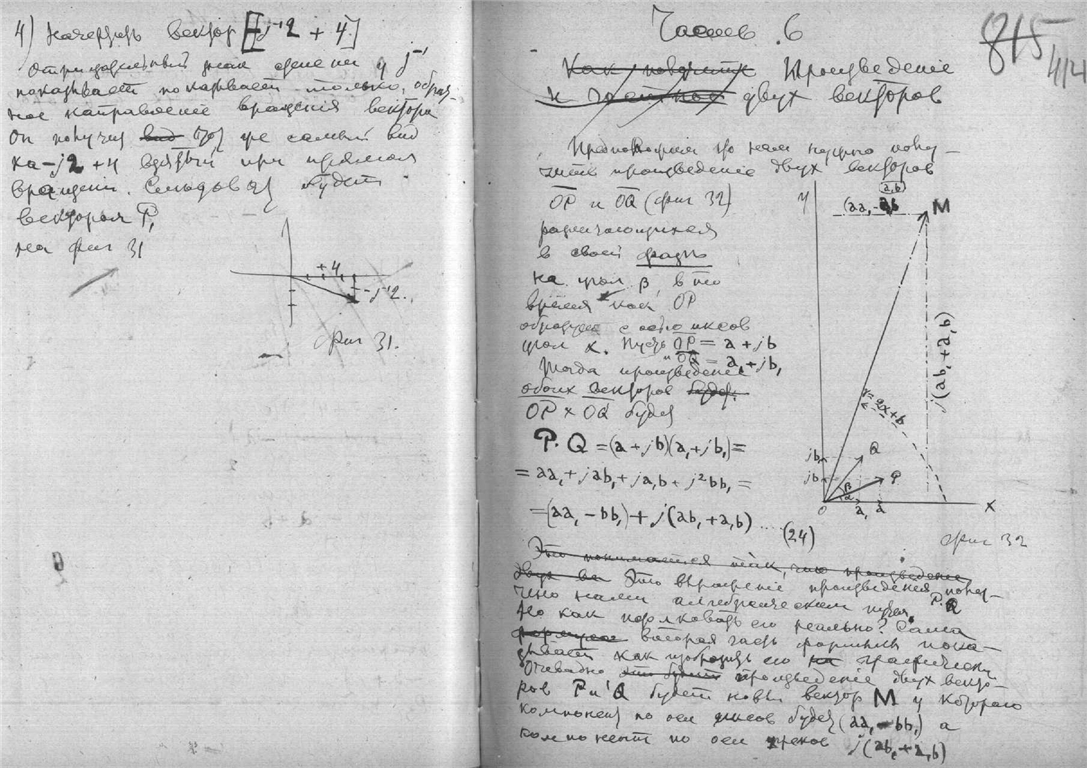 4) Начертить вектор [-j⁻¹2 + 4]
Отрицательный знак степени у j⁻¹
показывает показывает только, обрат-
ное направленiе вращенiя вектора
Он получил вид бы же самый вид
ка -j2 + 4 взятый при прямом
вращенiи. Следоват будет
вектором P,
на фиг 31
+4
-j⁻¹2.
Фиг 31.
Часть 6
815
414
Как поделить Произведенiе
и частное двух векторов
Предположим что нам нужно полу-
чить произведенiе двух векторов
OP и OQ (фиг 32)
различающихся
в своей фазе
на угол β, в то
время как OP
образует с осью иксов
угол α. Пусть OP = a + jb
" OQ = a₁ + jb₁
Тогда произведенiе
обоих векторов будет
OP × OQ будет
P·Q = (a + jb)(a₁ + jb₁) =
= aa₁ + jab₁ + ja₁b + j²bb₁ =
= (aa₁ - bb₁) + j(ab₁ + a₁b) .... (24)
y
(aa₁ - bb₁)
M
j(ab₁ + a₁b)
γ = 2α + β
jb₁
jb
Q
P
β
α
O
a₁
a
x
Фиг 32
Это понимается так, что произведенiе
двух ве Это выраженiе произведенiя полу-
чено нами алгебраическим путем P·Q
Но как толковать его реально? Сама
формула вторая часть формулы пока-
зывает как изобразить его на графически
Очевидно это будет произведенiе двух векто-
ров P и Q будет новый вектор M у которого
компонент по оси иксов будет (aa₁ - bb₁) а
компонент по оси игреков j(ab₁ + a₁b)